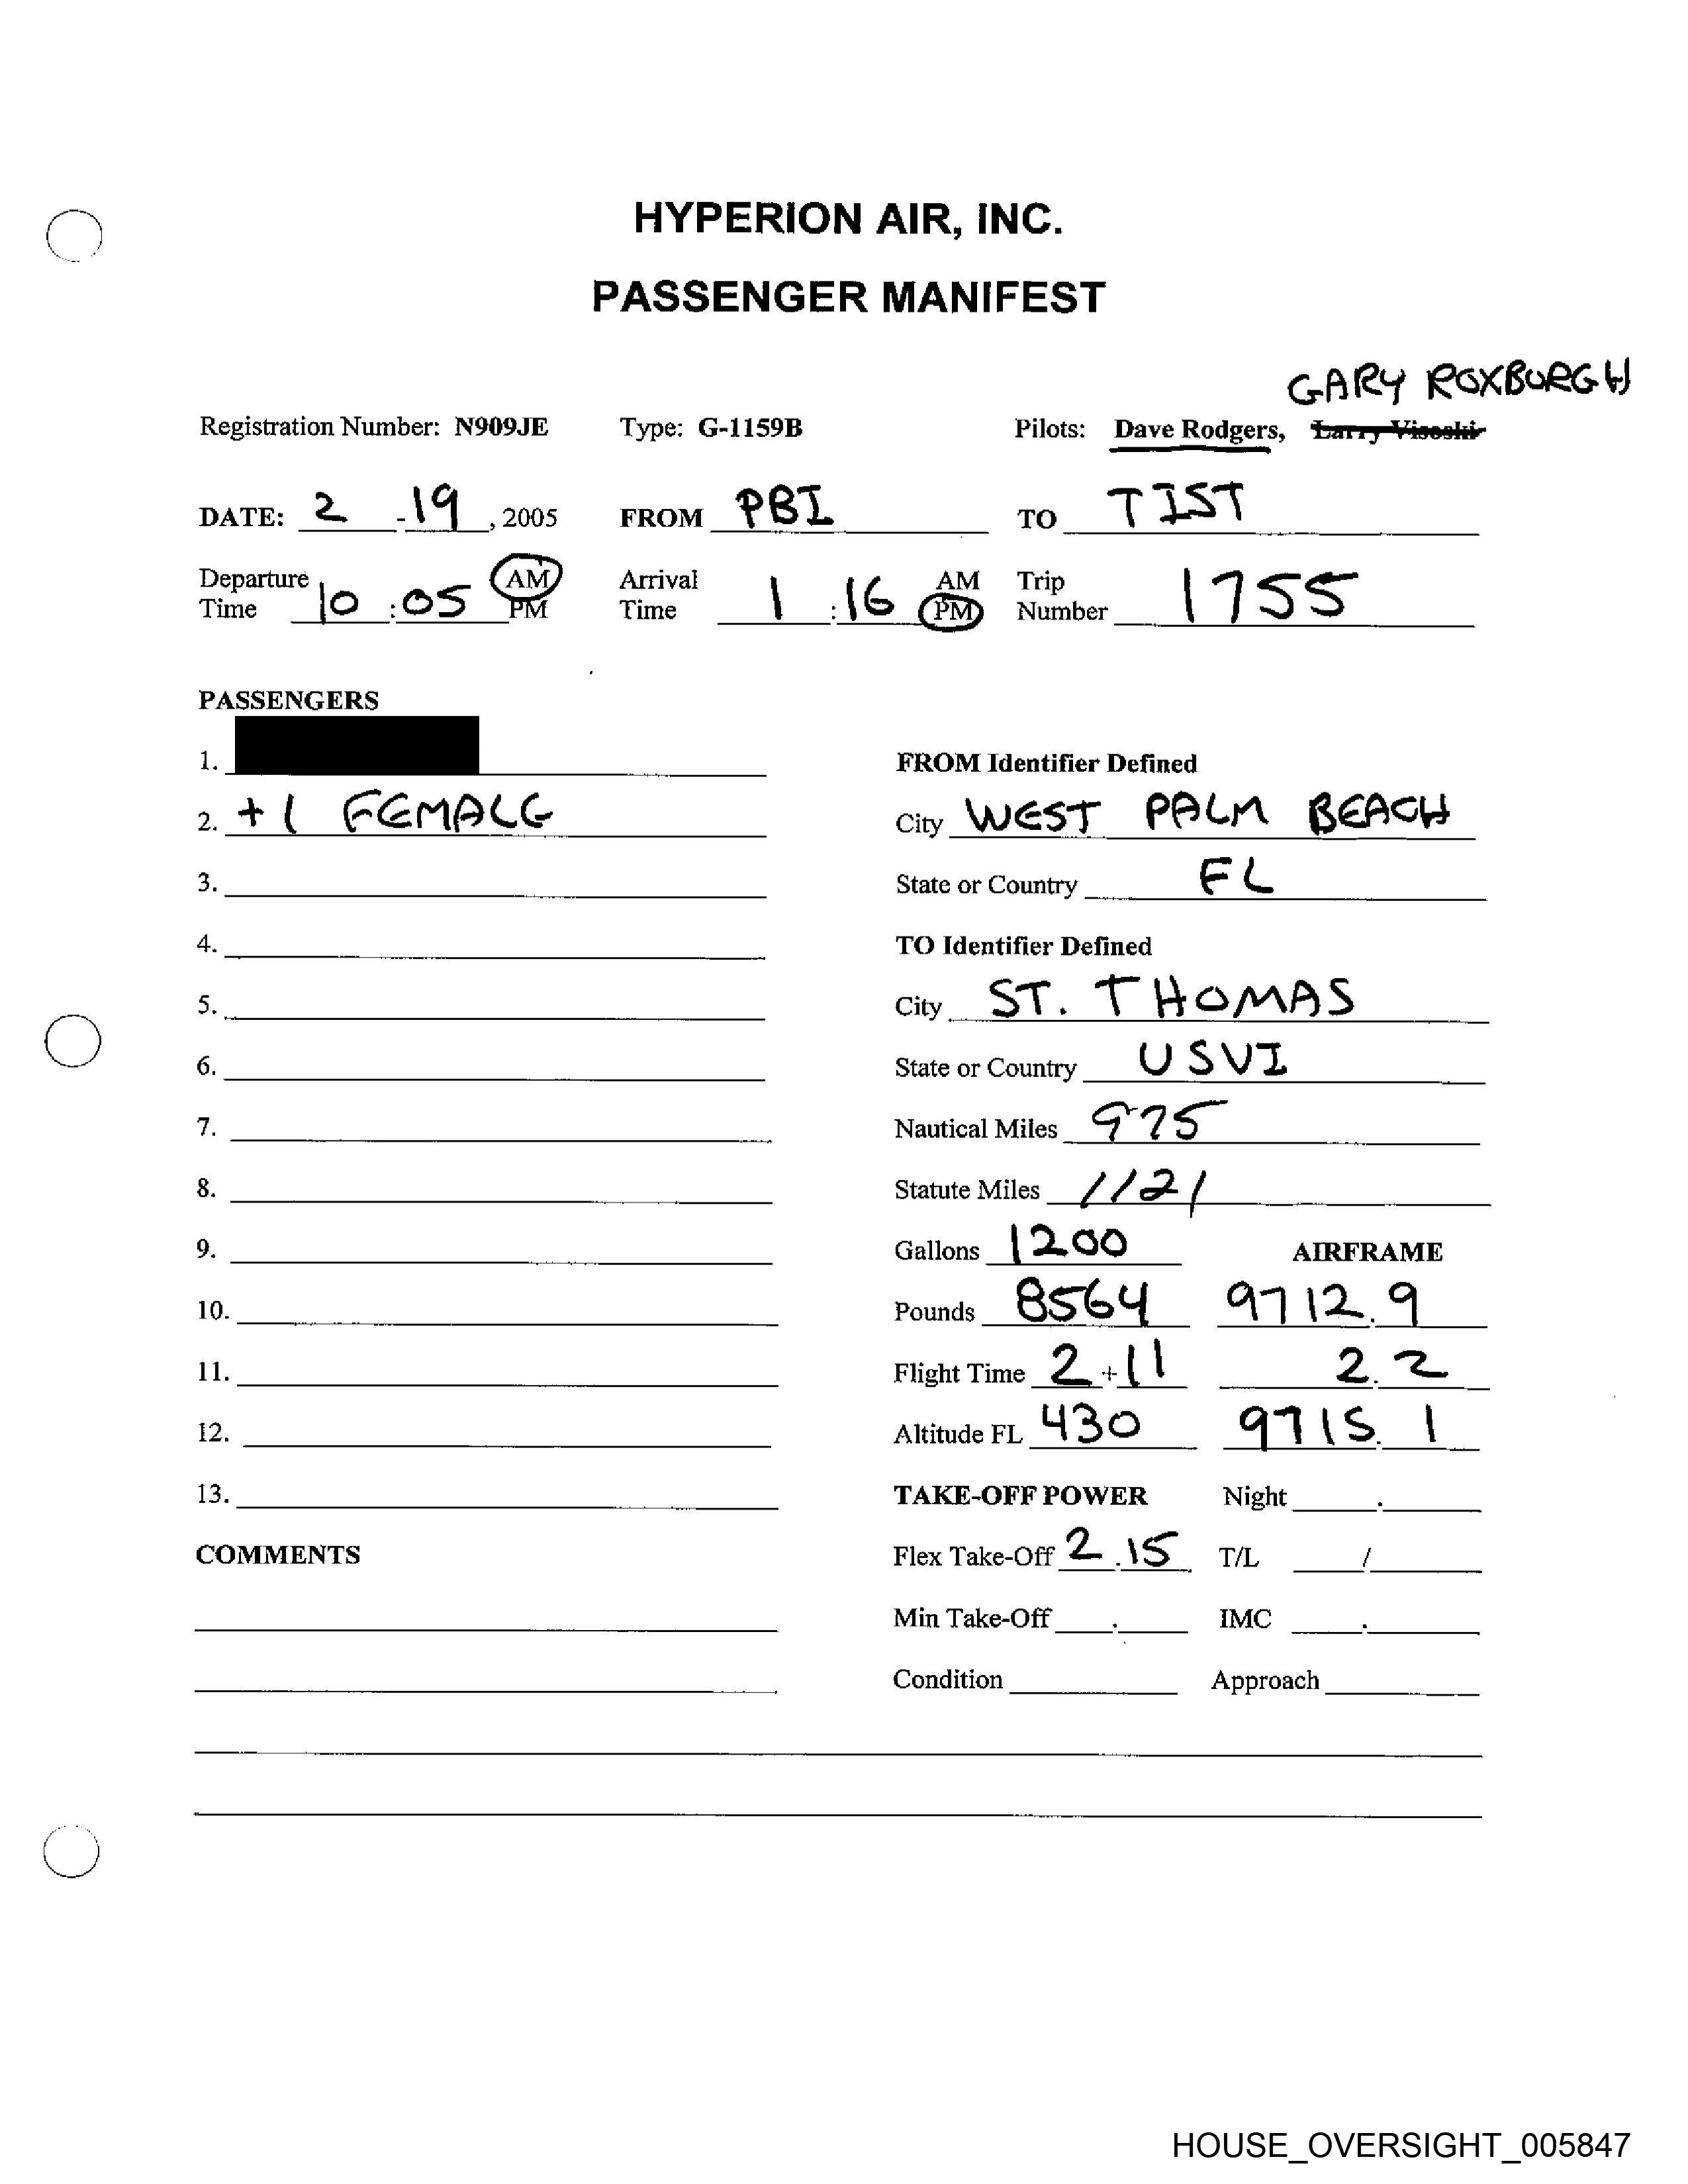 HYPERION AIR, INC.
PASSENGER MANIFEST
GARY ROXBURGH
Registration Number: N909JE Type: G-1159B Pilots: Dave Rodgers, Larry Visoski
DATE: 2 - 19, 2005 FROM PBI TO TIST
Departure Time 10:05 AM PM Arrival Time 1:16 AM PM Trip Number 1755
PASSENGERS
1.
FROM Identifier Defined
2. +1 FEMALE City WEST PALM BEACH
3. State or Country FL
4. TO Identifier Defined
5. City ST. THOMAS
6. State or Country USVI
7. Nautical Miles 975
8. Statute Miles 1121
9. Gallons 1200 AIRFRAME
10. Pounds 8564 9712.9
11. Flight Time 2+11 2.2
12. Altitude FL 430 9715.1
13. TAKE-OFF POWER Night .
COMMENTS Flex Take-Off 2.15 T/L /
Min Take-Off . IMC .
Condition Approach
HOUSE_OVERSIGHT_005847